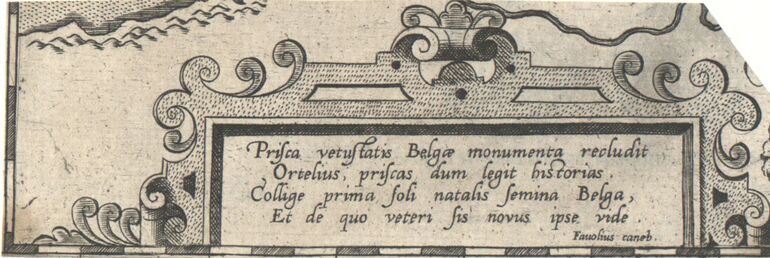 Priſca vetuſtatis Belgæ monumenta recludit
Ortelius, priſcas dum legit hiſtorias.
Collige prima ſoli natalis ſemina Belga,
Et de quo veteri ſis novus ipſe vide.
Favolius caneb.